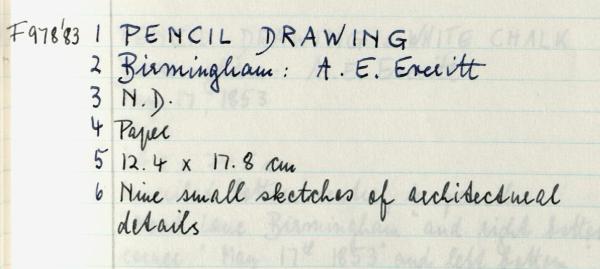 F978'83 1 PENCIL DRAWING
2 Birmingham: A. E. Everitt
3 N.D.
4 Paper
5 12.4 x 17.8 cm
6 Nine small sketches of architectural
details